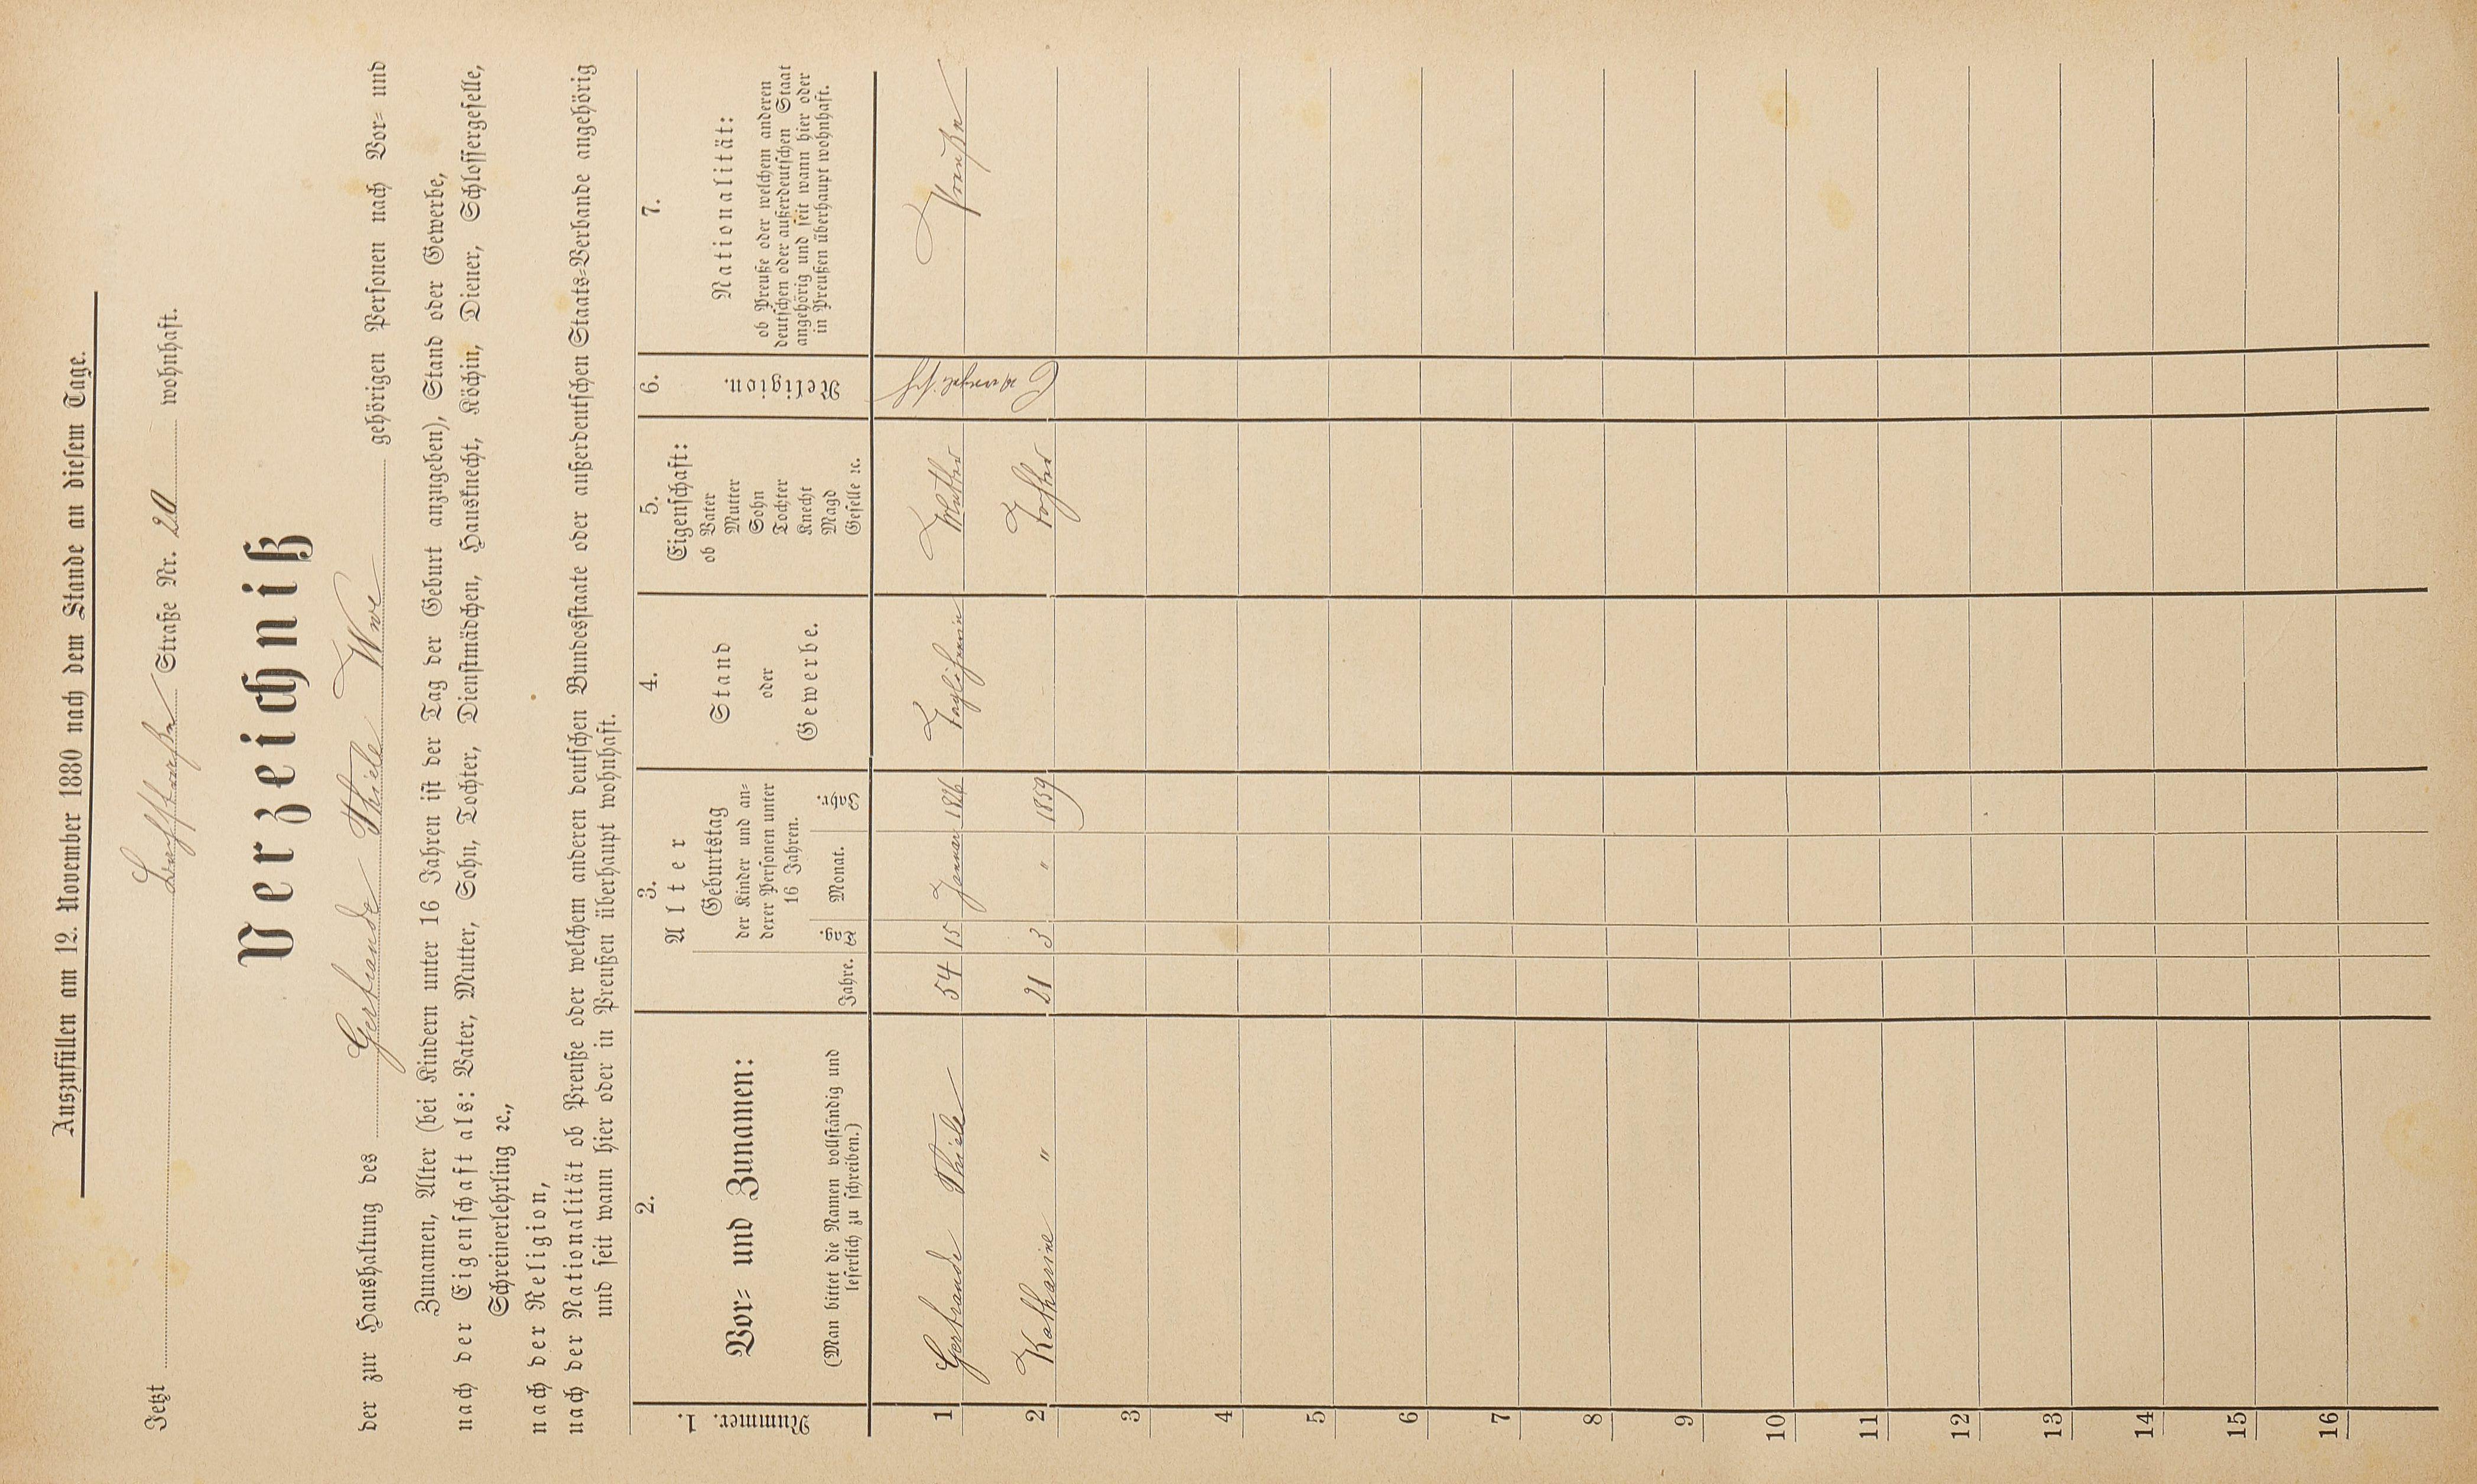 Auszufüllen am 12. November 1880 nach dem Stande an diesem Tage.
Jetzt Straße Nr. 20 wohnhaft.
Verzeichniß
der zur Haushaltung des Gertraude Thiele Wwe gehörigen Personen nach Vor- und
Zunamen, Alter (bei Kindern unter 16 Jahren ist der Tag der Geburt anzugeben), Stand oder Gewerbe,
nach der Eigenschaft als: Vater, Mutter, Sohn, Tochter, Dienstmädchen, Hausknecht, Köchin, Diener, Schlossergeselle,
Schreinerlehrling ꝛc.,
nach der Religion,
nach der Nationalität ob Preuße oder welchem anderen deutschen Bundesstaate oder außerdeutschen Staats-Verbande angehörig
und seit wann hier oder in Preußen überhaupt wohnhaft.
1.
Nummer.
2.
Vor- und Zunamen:
(Man bittet die Namen vollständig und
leserlich zu schreiben.)
3.
Alter
Jahre.
Geburtstag
der Kinder und an-
derer Personen unter
16 Jahren.
Tag.
Monat.
Jahr.
4.
Stand
oder
Gewerbe.
5.
Eigenschaft:
ob Vater
Mutter
Sohn
Tochter
Knecht
Magd
Geselle ꝛc.
6.
Religion.
7.
Nationalität:
ob Preuße oder welchem anderen
deutschen oder außerdeutschen Staat
angehörig und seit wann hier oder
in Preußen überhaupt wohnhaft.
1 Gertraude Thiele 54 15 Januar 1826 Taglöhnerin Mutter Evangelisch Preuße
2 Katharine " 21 3 " 1859 Tochter
3
4
5
6
7
8
9
10
11
12
13
14
15
16